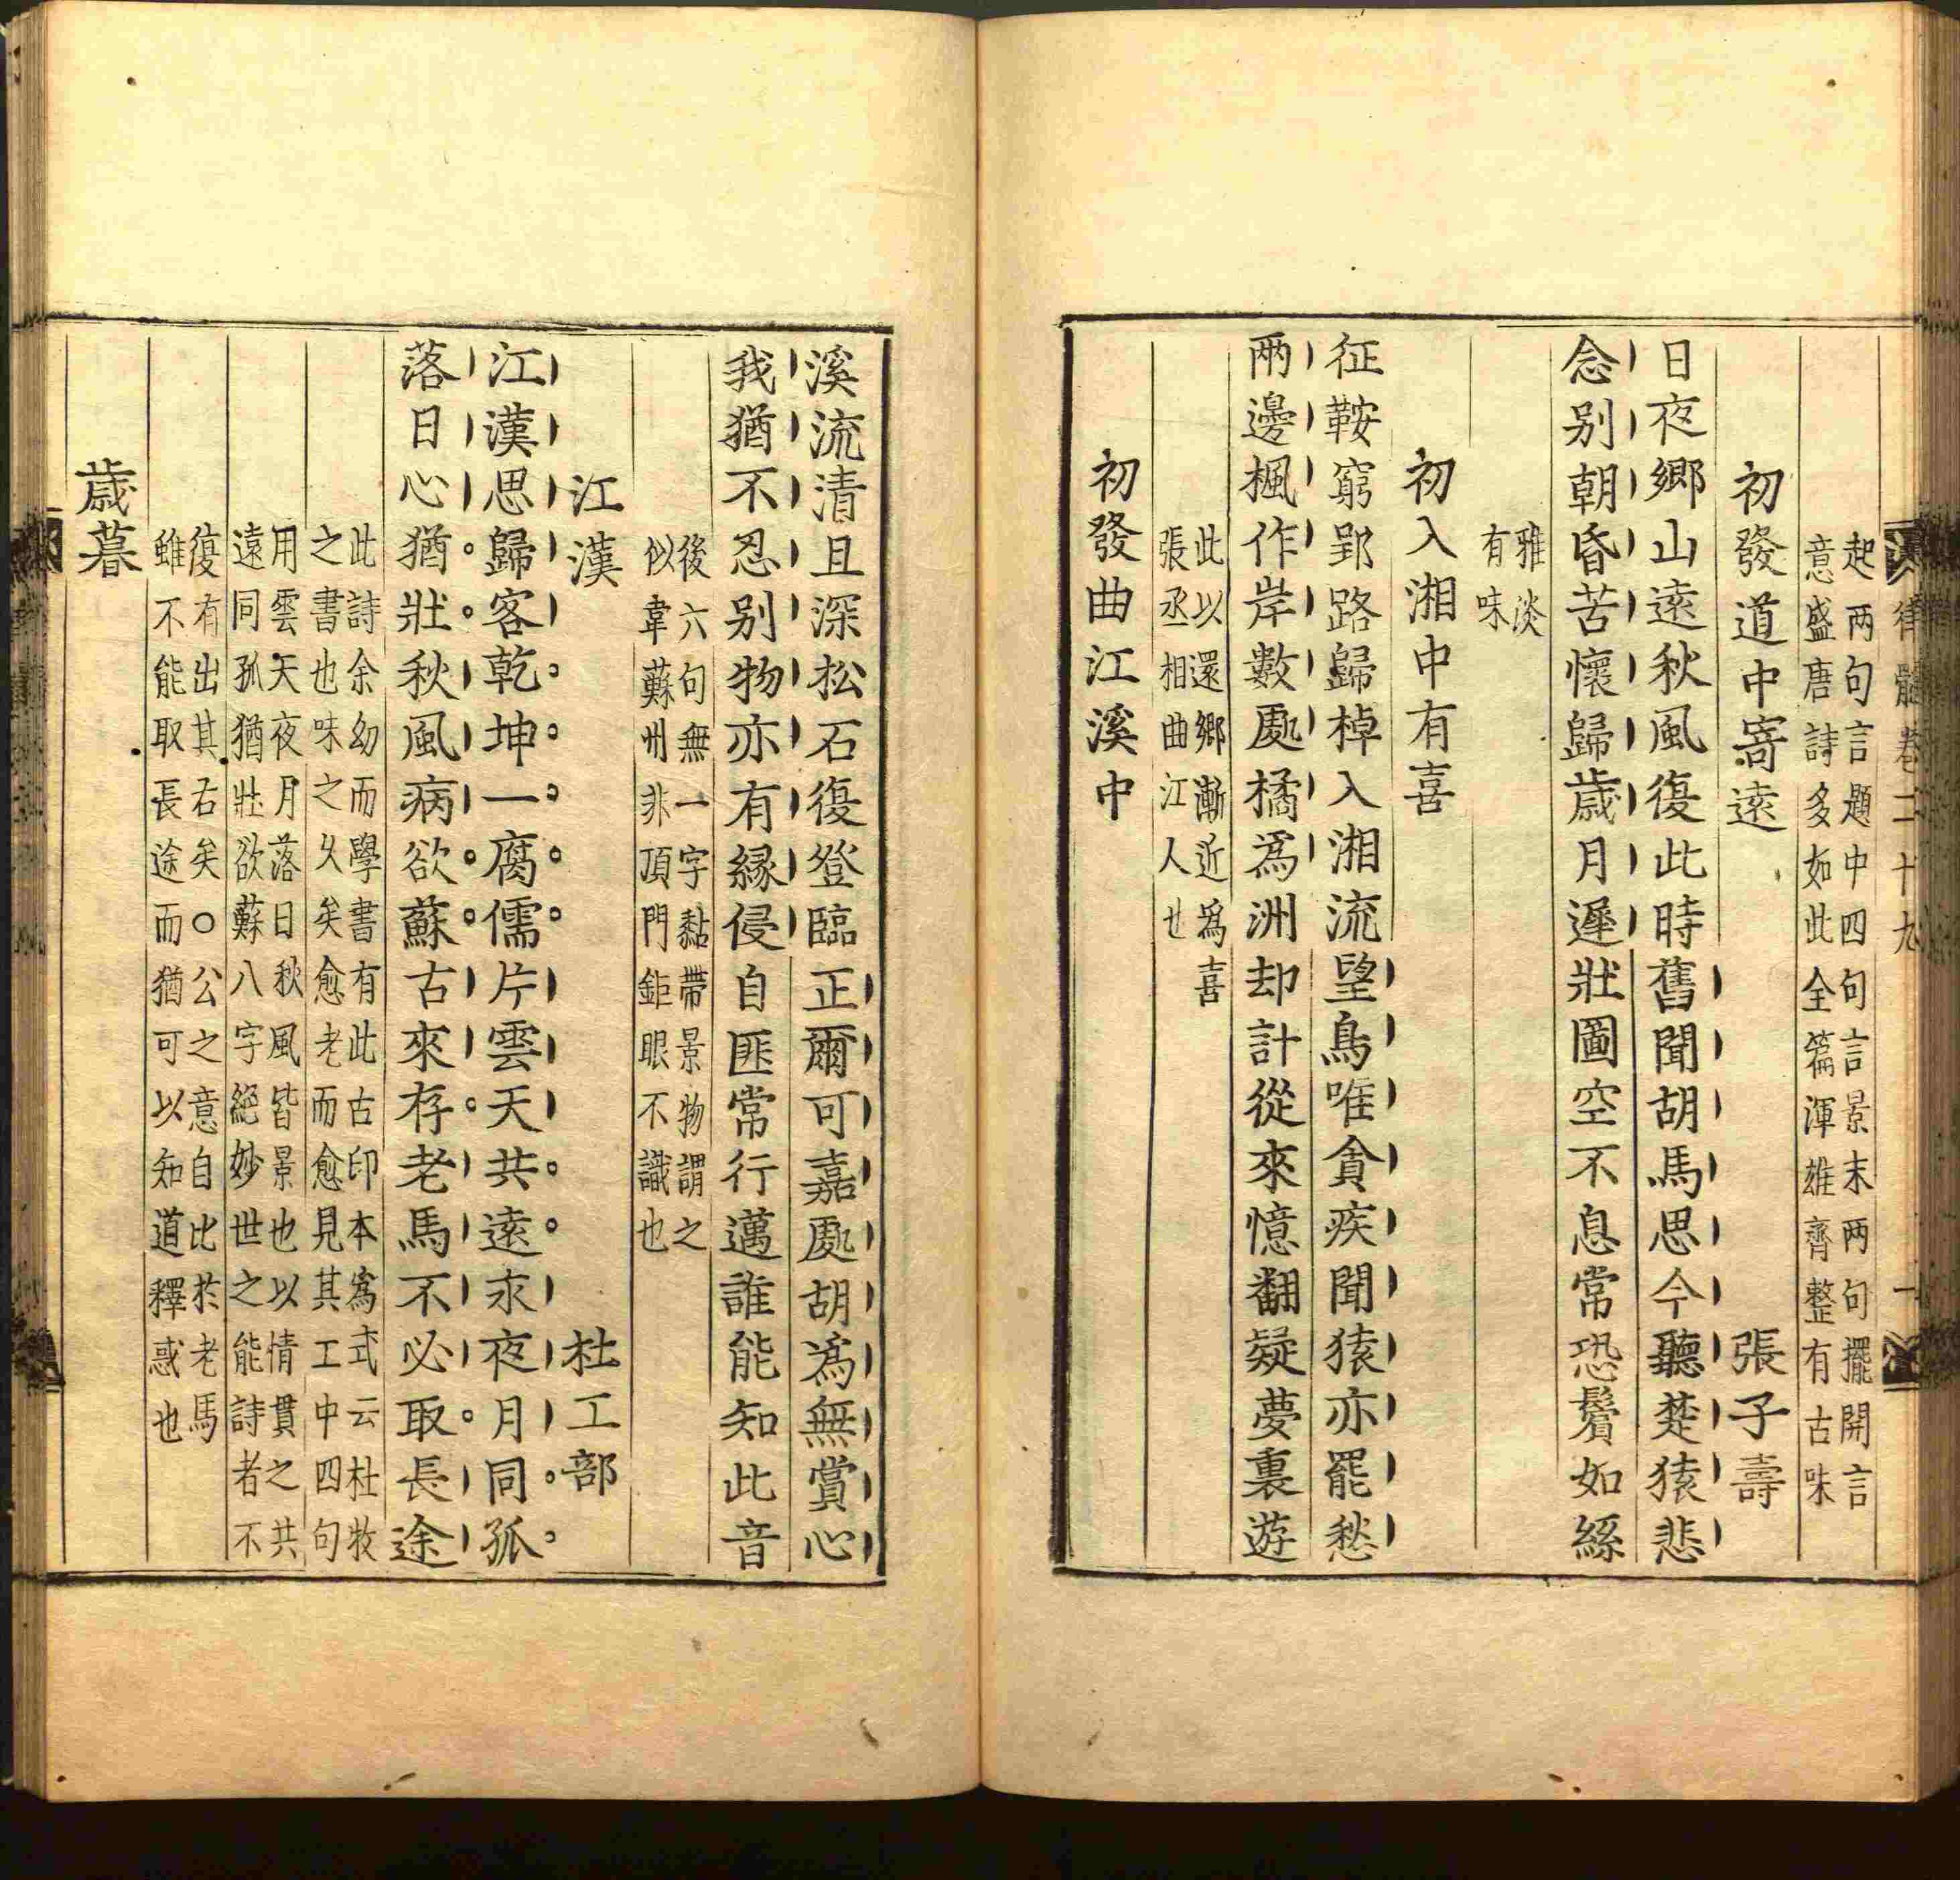 律髓卷二十九　一
起两句言題中四句言景末两句擺開言
意盛唐詩多如此全篇渾雄齊整有古味
初發道中寄遠　張子壽
日夜鄉山遠秋風復此時舊聞胡馬思今聽楚猿悲
念别朝昏苦懷歸歲月遲壯圖空不息常恐鬢如絲
雅淡
有味
初入湘中有喜
征鞍窮郢路歸棹入湘流望鳥唯貪疾聞猿亦罷愁
兩邊楓作岸數處橘爲洲却計從來憶翻疑夢裏遊
此以還鄉漸近爲喜
張丞相曲江人也
初發曲江溪中
溪流清且深松石復登臨正爾可嘉處胡爲無賞心
我猶不忍别物亦有緣侵自匪常行邁誰能知此音
後六句無一字黏帶景物謂之
似韋蘇州非頂門鉅眼不識也
江漢　杜工部
江漢思歸客乾坤一腐儒片雲天共遠永夜月同孤
落日心猶壯秋風病欲蘇古來存老馬不必取長途
此詩余幼而學書有此古印本爲式云杜牧
之書也味之乆矣愈老而愈見其工中四句
用雲天夜月落日秋風皆景也以情貫之共
遠同孤猶壯欲蘇八字絕妙世之能詩者不
復有出其右矣○公之意自比於老馬
雖不能取長途而猶可以知道釋惑也
歲暮